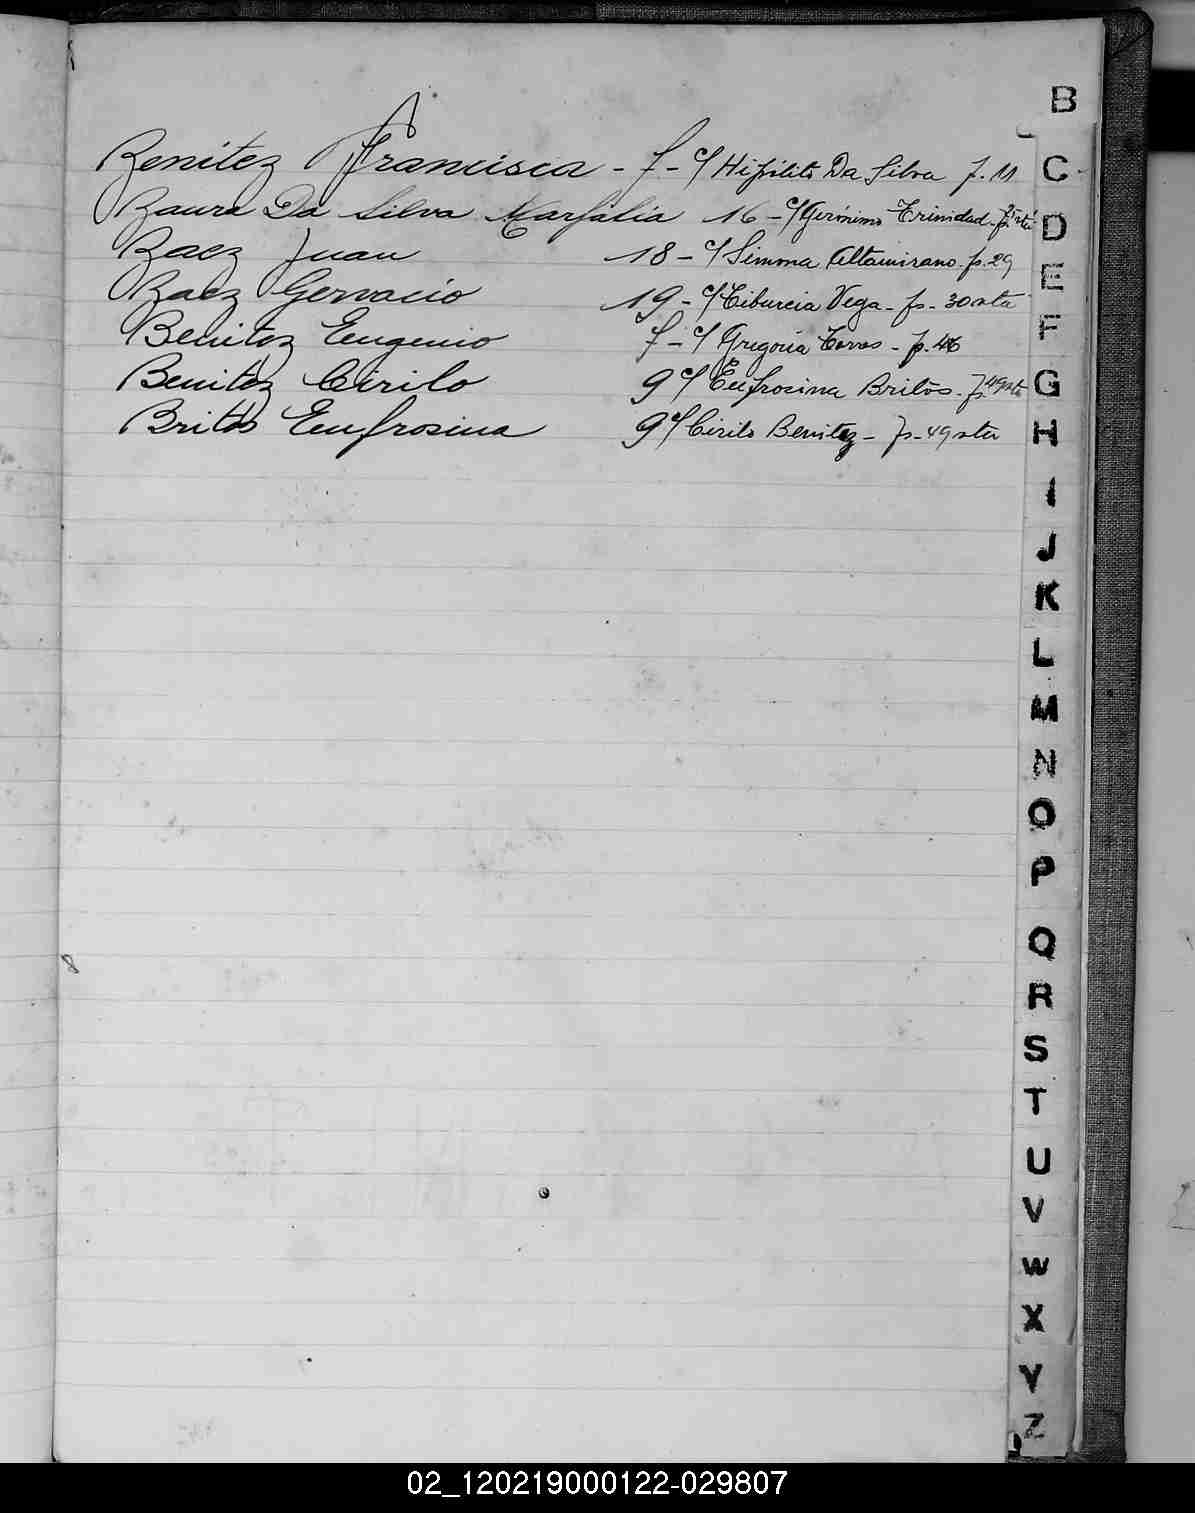 B
Benitez Francisca - f - c/ Hipólito Da Silva f. 11
Baura Da Silva Marfalia 16 - c/ Gerónimo Trinidad - fs. vta
Baez Juan 18 - c/ Simona Altamirano - fs. 29
Baez Gervacio 19 - c/ Tiburcia Vega - fs - 30 vta
Benitez Eugenio f - c/ Gregoria Torres - fs. 46
Benitez Cirilo 9 c/ Eufrosina Britos - fs. 49 vta
Britos Eufrosina 9 c/ Cirilo Benitez - fs - 49 vta
C
D
E
F
G
H
I
J
K
L
M
N
O
P
Q
R
S
T
U
V
W
X
Y
Z
02_120219000122-029807